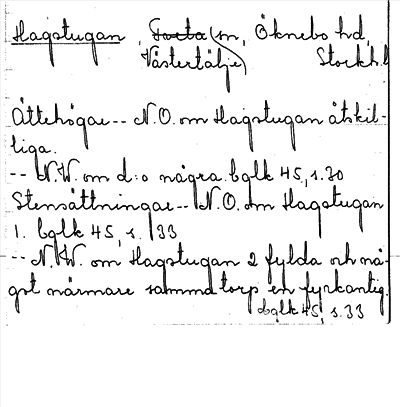 Hagstugan, Tveta sn, Öknebo hd,
Västertälje Stockh.l
Ättehögar -- N.O. om Hagstugan åtskil-
liga.
-- N.W. om d:o några. bglk 45, s. 30
Stensättningar -- N.O. om Hagstugan
1. bglk 45, s. 33
-- N.W. om Hagstugan 2 fylda och nå-
got närmare samma torp en fyrkantig.
bglk 45, s. 33